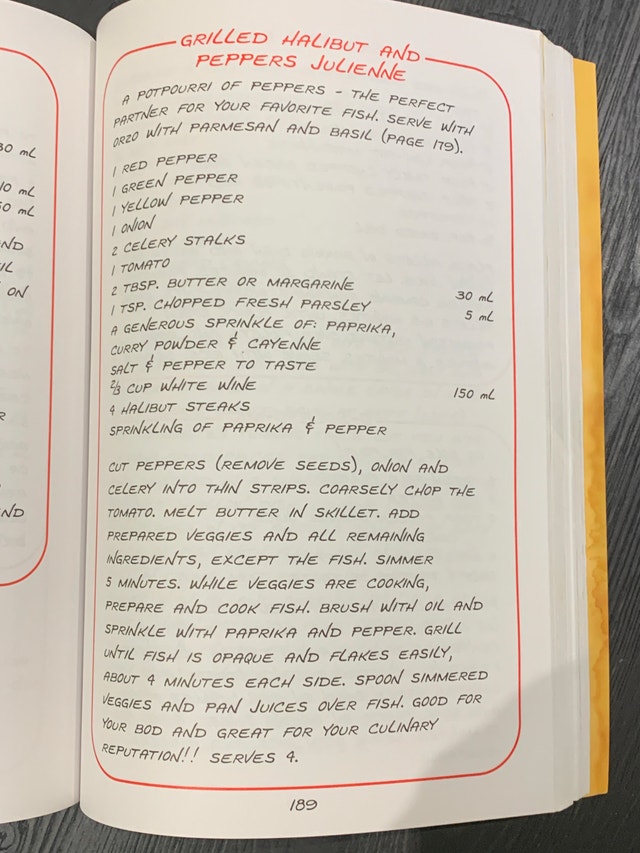 30 mL
10 mL
50 mL
ND
IL
ON
R
ND
GRILLED HALIBUT AND
PEPPERS JULIENNE
A POTPOURRI OF PEPPERS - THE PERFECT
PARTNER FOR YOUR FAVORITE FISH. SERVE WITH
ORZO WITH PARMESAN AND BASIL (PAGE 179).
1 RED PEPPER
1 GREEN PEPPER
1 YELLOW PEPPER
1 ONION
2 CELERY STALKS
1 TOMATO
2 TBSP. BUTTER OR MARGARINE 30 mL
1 TSP. CHOPPED FRESH PARSLEY 5 mL
A GENEROUS SPRINKLE OF: PAPRIKA,
CURRY POWDER & CAYENNE
SALT & PEPPER TO TASTE
2/3 CUP WHITE WINE 150 mL
4 HALIBUT STEAKS
SPRINKLING OF PAPRIKA & PEPPER
CUT PEPPERS (REMOVE SEEDS), ONION AND
CELERY INTO THIN STRIPS. COARSELY CHOP THE
TOMATO. MELT BUTTER IN SKILLET. ADD
PREPARED VEGGIES AND ALL REMAINING
INGREDIENTS, EXCEPT THE FISH. SIMMER
5 MINUTES. WHILE VEGGIES ARE COOKING,
PREPARE AND COOK FISH. BRUSH WITH OIL AND
SPRINKLE WITH PAPRIKA AND PEPPER. GRILL
UNTIL FISH IS OPAQUE AND FLAKES EASILY,
ABOUT 4 MINUTES EACH SIDE. SPOON SIMMERED
VEGGIES AND PAN JUICES OVER FISH. GOOD FOR
YOUR BOD AND GREAT FOR YOUR CULINARY
REPUTATION!! SERVES 4.
189